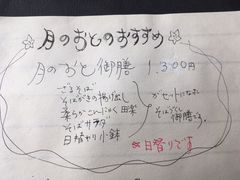 月のおとのおすすめ
月のおと御膳 1.300円
ざるそば
そばがきの揚げ出し
柔らかこんにゃく田楽
そばサラダ
日替わり小鉢
がセットになった
そばづくし
御膳です。
※日替りです